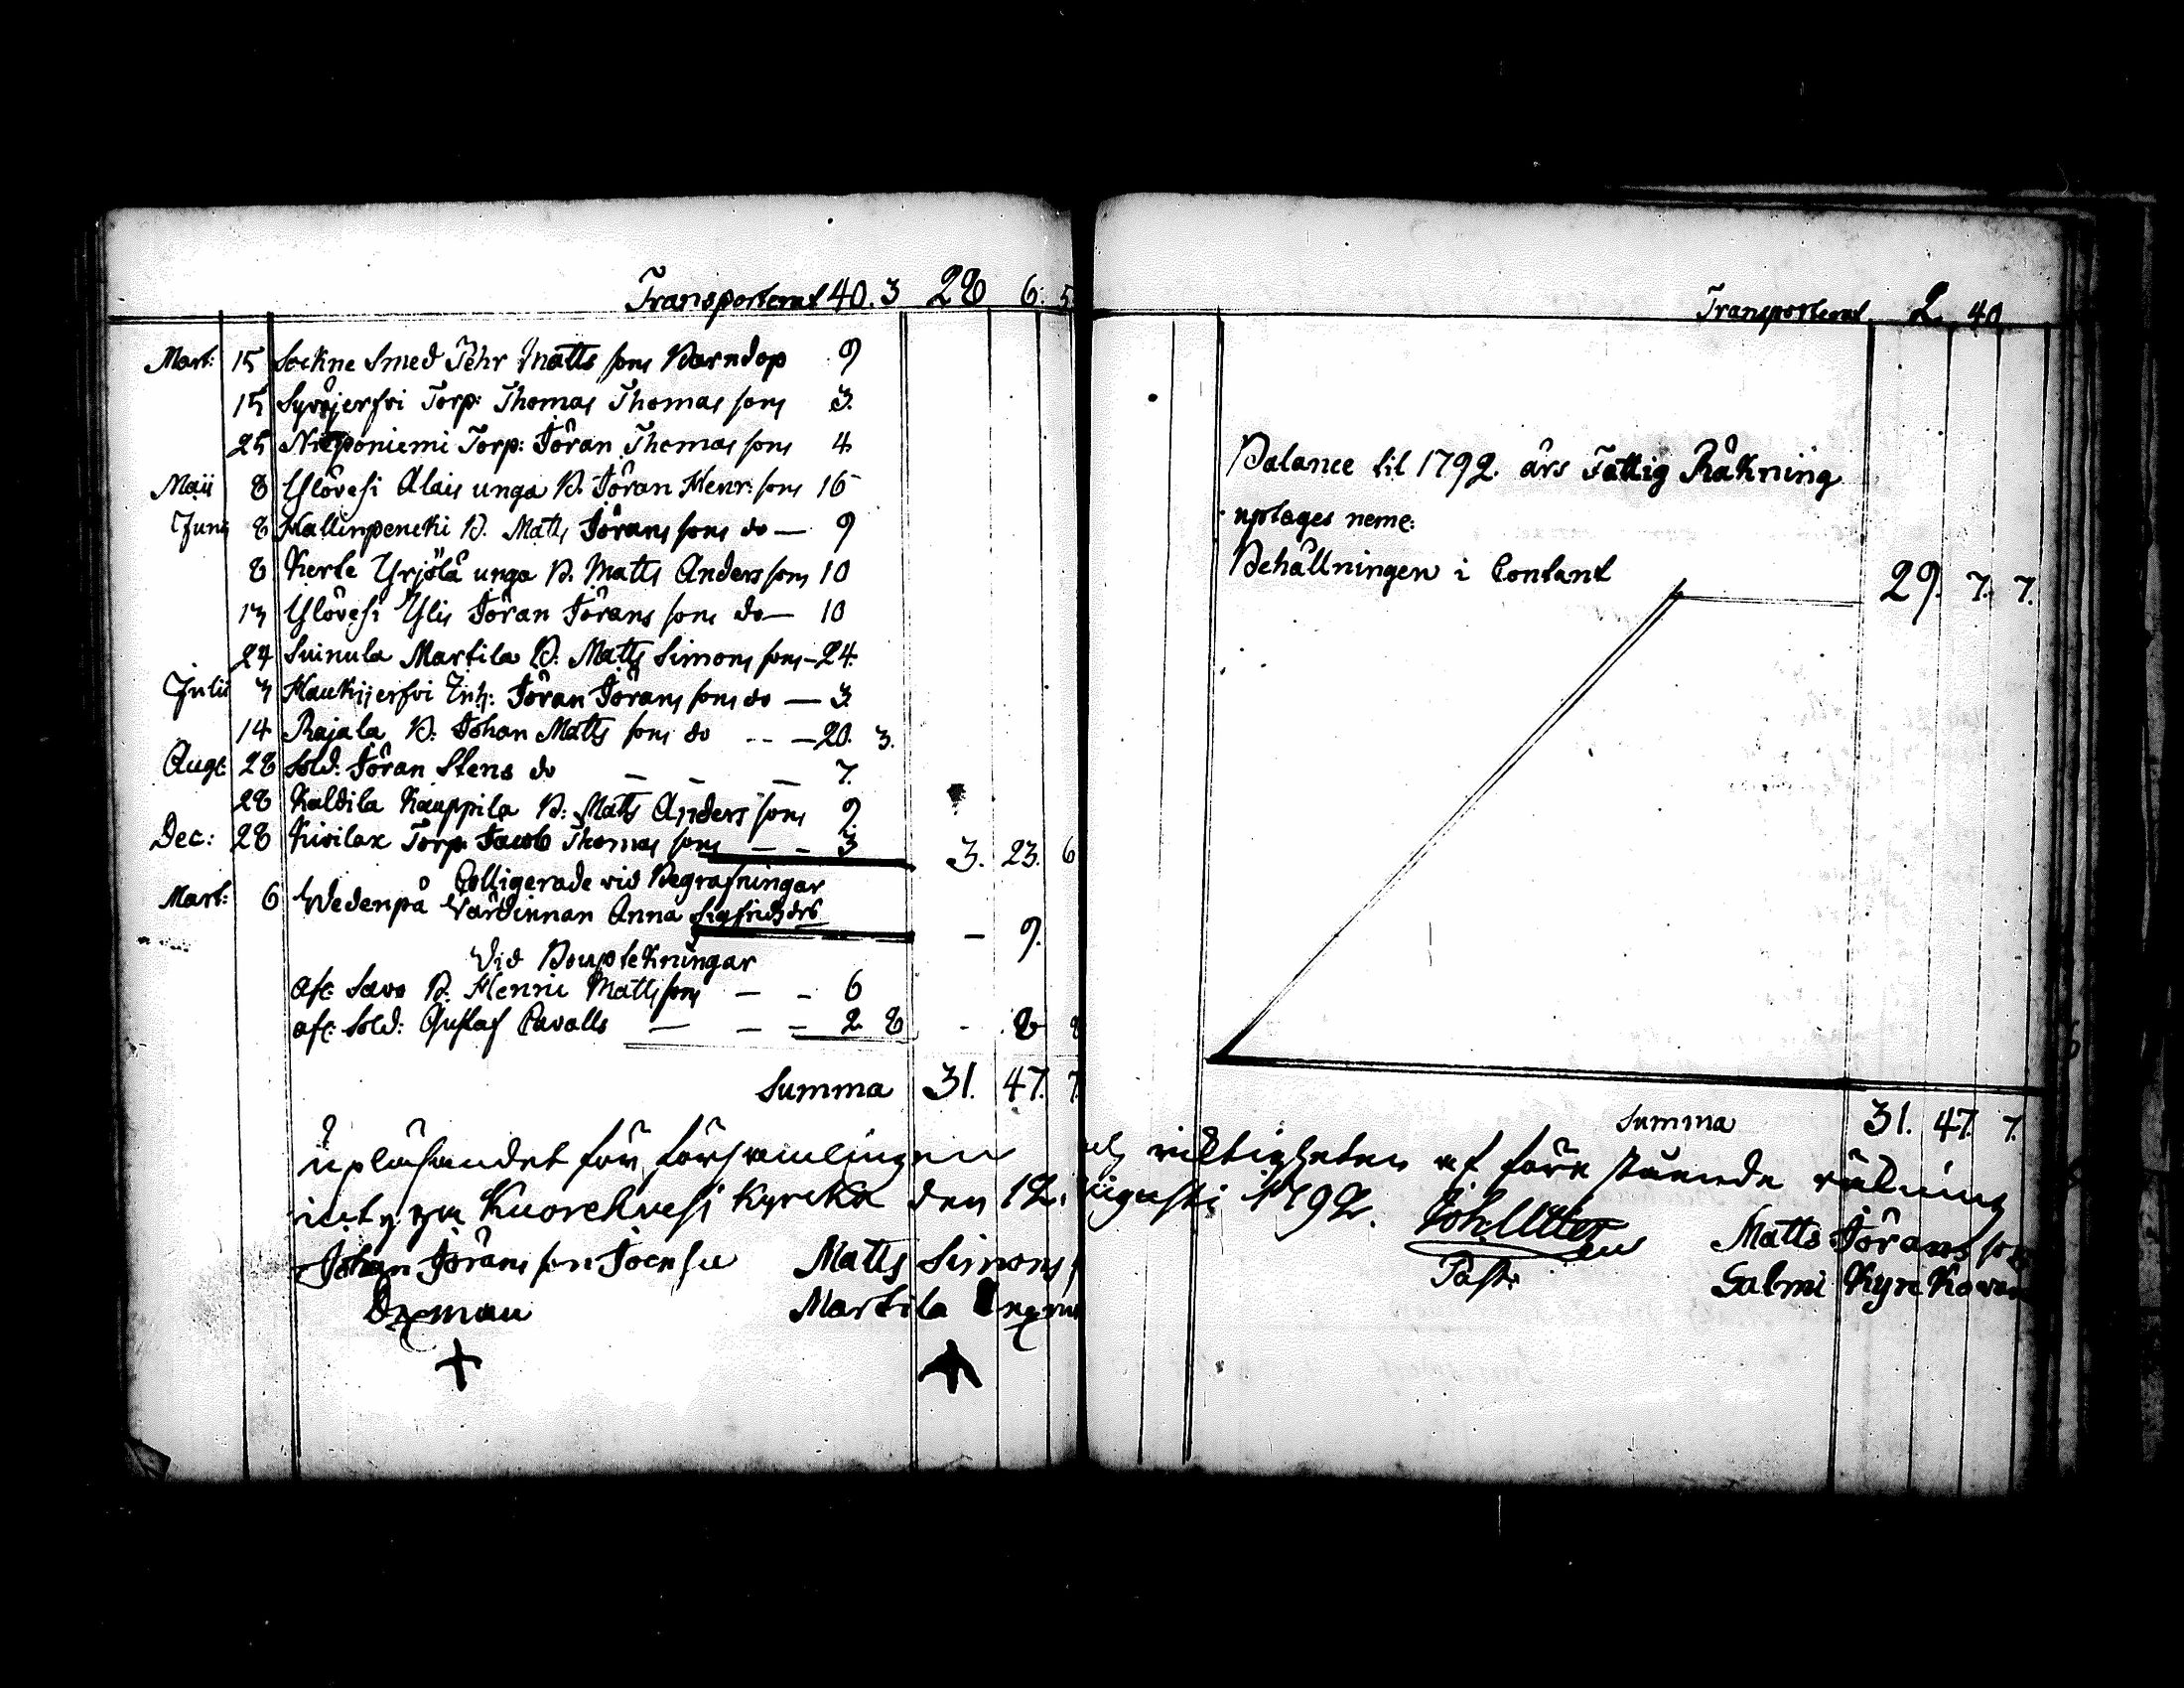 Transporterat 40. 3 28 6. 5
Mart: 15 Sockne Smed Pehr Matts sons Barndop 9
15 Syväjerfvi Torp: Thomas Thomas sons 3.
25 Nieponiemi Torp: Jöran Thomas sons 4
Maii 8 Ylövesi Alais unga B. Jöran Henr: sons 16
Junii 8 Hallinpencki B. Matts Jörans sons do — 9
8 Kerte Yrjölä unga B. Matts Anders sons 10
13 Ylövesi Ylis Jöran Jörans sons do — 10
24 Suinula Martila B. Matts Simons sons — 24.
Julii 3 Haukijerfvi Inh: Jöran Jörans sons do — 3.
14 Rajala B. Johan Matts sons do — 20. 3.
Aug: 28 Sold. Jöran Stens do — — — 7.
28 Kaldila Kauppila B: Matts Anders sons 9.
Dec: 28 Kivilax Torp: Jacob Thomas sons — — 3 3. 23. 6
Colligerade vid Begrafningar
Mart: 6 Wedenpä Värdinnan Anna Sigfridsdr — 9.
Vid Boupteckningar
afl: Savo B. Henric Mattssons — — 6
afl: Sold: Gustaf Cavalls — — — 2. 8 - 8 8
Summa 31. 47. 7.
Transporterat 2. 40
Balance til 1792. års Fattig Räkning
uptages neml:
Behållningen i Contant 29. 7. 7.
Summa 31. 47. 7.
Upläsandet för församlingen och riktigheten af före stående räkning
intygar Kuorehvesi Kyrcka den 12. Augusti 1792.
Johan Jörans son Joensu Matts Simons Matts Jörans son
Sexman Martila Past: Salmi Kyrckovärd